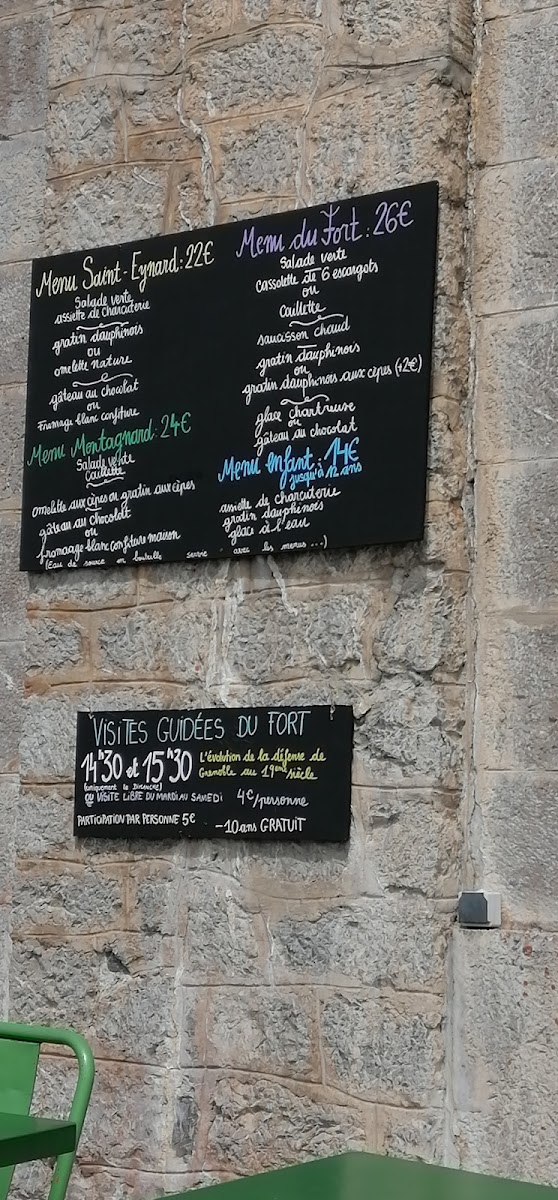 Menu Saint-Eynard: 22€
Salade verte
assiette de charcuterie
gratin dauphinois
ou
omelette nature
gâteau au chocolat
ou
Fromage blanc confiture
Menu Montagnard: 24€
Salade verte
Caillette
omelette aux cèpes ou gratin aux cèpes
gâteau au chocolat
ou
fromage blanc confiture maison
(Eau de source en bouteille servie avec les menus...)
Menu du Fort: 26€
Salade verte
Cassolette de 6 escargots
ou
Caillette
saucisson chaud
gratin dauphinois
ou
gratin dauphinois aux cèpes (+2€)
glace chartreuse
ou
gâteau au chocolat
Menu enfant: 14€
jusqu'à 12 ans
assiette de charcuterie
gratin dauphinois
glace à l'eau
VISITES GUIDÉES DU FORT
14h30 et 15h30
(uniquement le Dimanche)
L'évolution de la défense de
Grenoble au 19ème siècle
OU VISITE LIBRE DU MARDI AU SAMEDI 4€/personne
PARTICIPATION PAR PERSONNE 5€ -10 ans GRATUIT